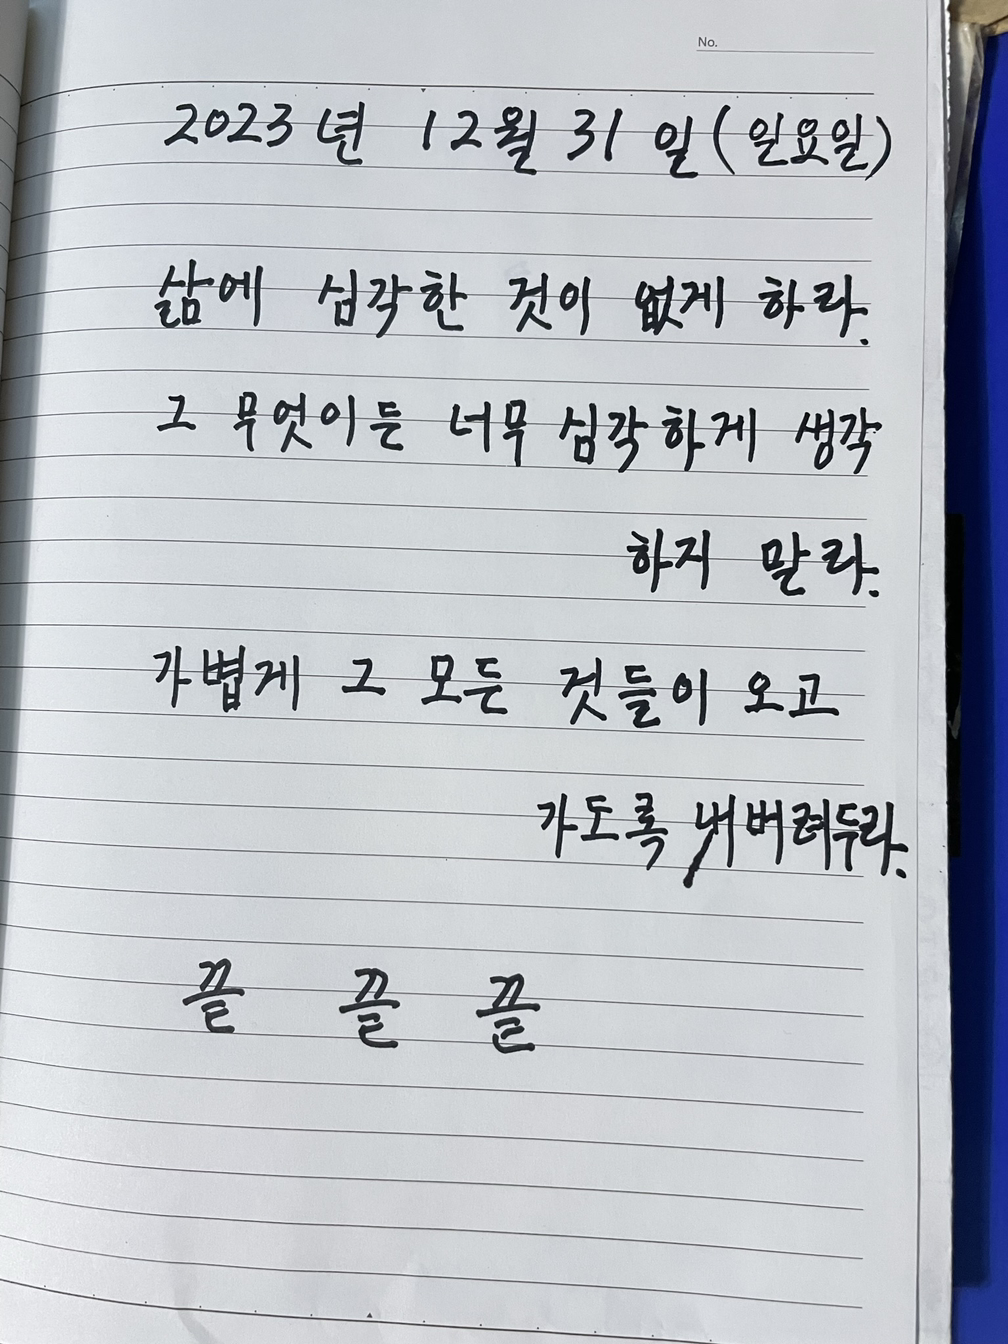 No.
2023년 12월 31일(일요일)
삶에 심각한 것이 없게 하라.
그 무엇이든 너무 심각하게 생각
하지 말라.
가볍게 그 모든 것들이 오고
가도록 내버려두라.
끝 끝 끝